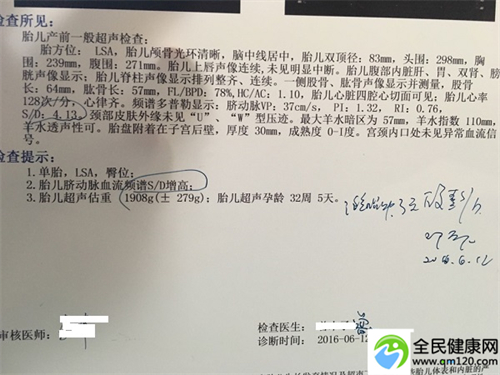 检查所见:
胎儿产前一般超声检查:
胎方位: LSA, 胎儿颅骨光环清晰, 脑中线居中, 胎儿双顶径: 83mm, 头围: 298mm, 胸
围: 239mm, 腹围: 271mm。胎儿上唇声像连续, 未见明显中断。胎儿腹部内脏肝、胃、双肾、膀
胱声像显示; 胎儿脊柱声像显示排列整齐、连续。一侧股骨、肱骨声像显示并测量, 股骨
长: 64mm, 肱骨长: 57mm, FL/BPD: 78%, HC/AC: 1.10, 胎儿心脏四腔心切面可见; 胎儿心率
128次/分, 心律齐。频谱多普勒显示: 脐动脉VP: 37cm/s, PI: 1.32, RI: 0.76,
S/D: 4.13。颈部皮肤外缘未见“U”、“W”型压迹。最大羊水暗区为 57mm, 羊水指数 110mm,
羊水透声性可。胎盘附着在子宫后壁, 厚度 30mm, 成熟度 0-I度。宫颈内口处未见异常血流信
号。
检查提示:
1. 单胎, LSA, 臀位;
2. 胎儿脐动脉血流频谱S/D增高;
3. 胎儿超声估重 1908g(± 279g); 胎儿超声孕龄 32周 5天。
2016.6.12
审核医师:
检查医生:
诊断时间: 2016-06-12
全民健康网
www.qm120.com